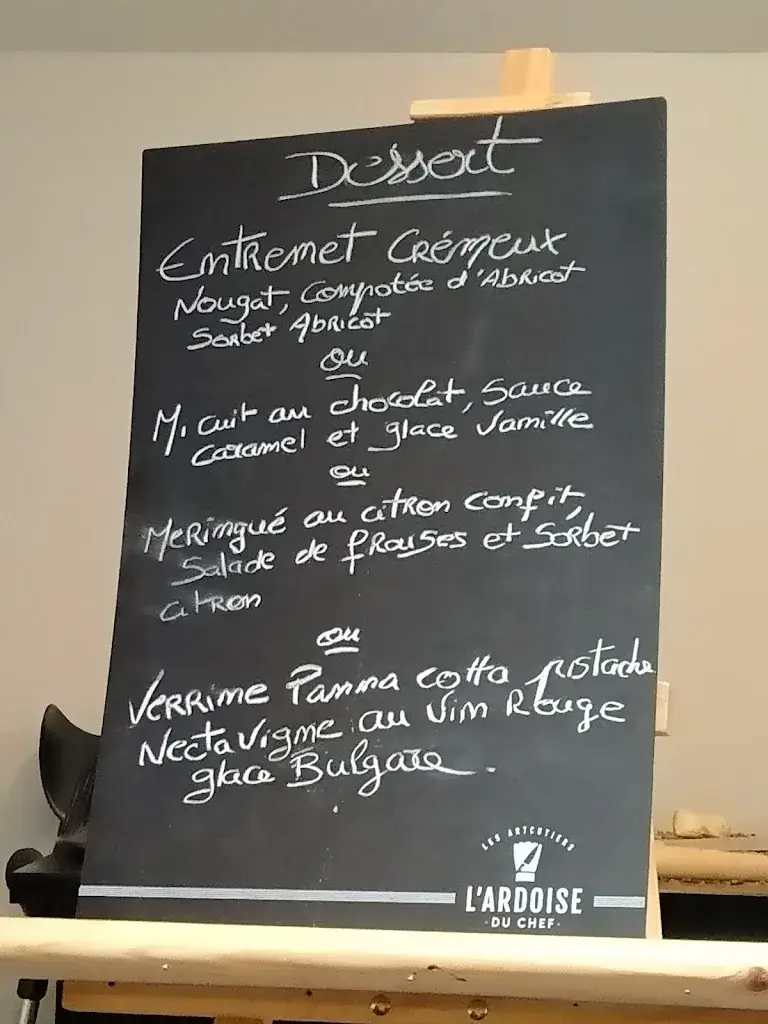 Dessert
Entremet Crémeux
Nougat, Compotée d'Abricot
Sorbet Abricot
ou
Mi cuit au chocolat, Sauce
caramel et glace Vanille
ou
Meringué au citron confit,
Salade de fraises et Sorbet
citron
ou
Verrine Panna cotta pistache
Nectavigne au vin Rouge
glace Bulgare.
LES ARTCUTIERS
L'ARDOISE
DU CHEF